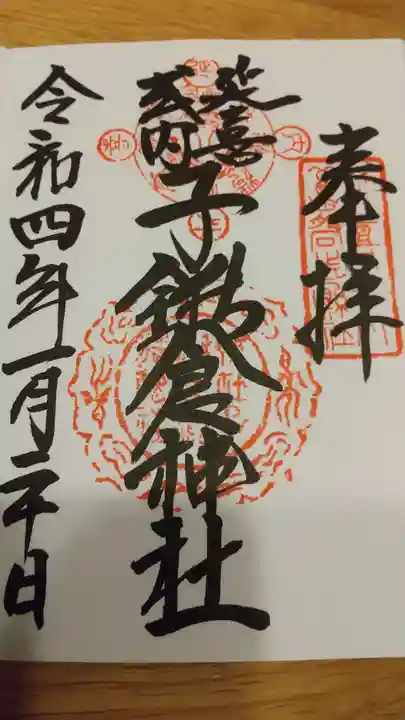 奉拝
延喜
式内
子鍬倉神社
令和四年一月二十日